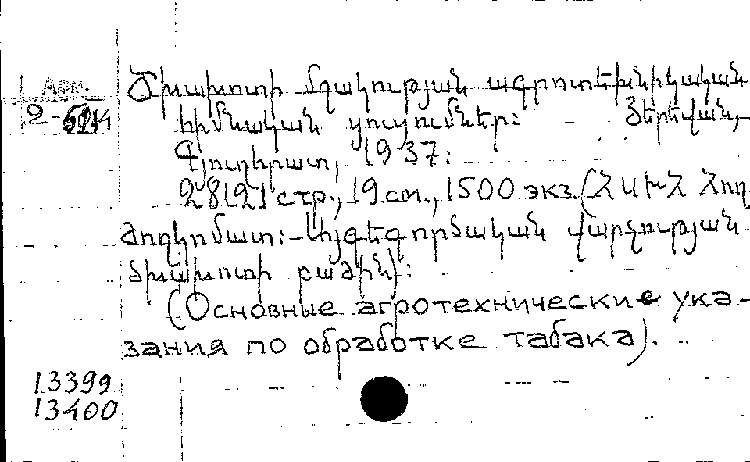 Арм.
2-
Ծխախոտի մշակության ագրոտեխնիկական
հիմնական ցուցումներ: Յերեվան,
Գյուղհրատ, 1937:
28[2] стр., 19 см., 1500 экз. (ՀՍԽՀ Հող
Ժողկոմատ:- Այգեգործական վարչության
ծխախոտի բաժին):
(Основные агротехнические ука-
зания по обработке табака).
13399
13400